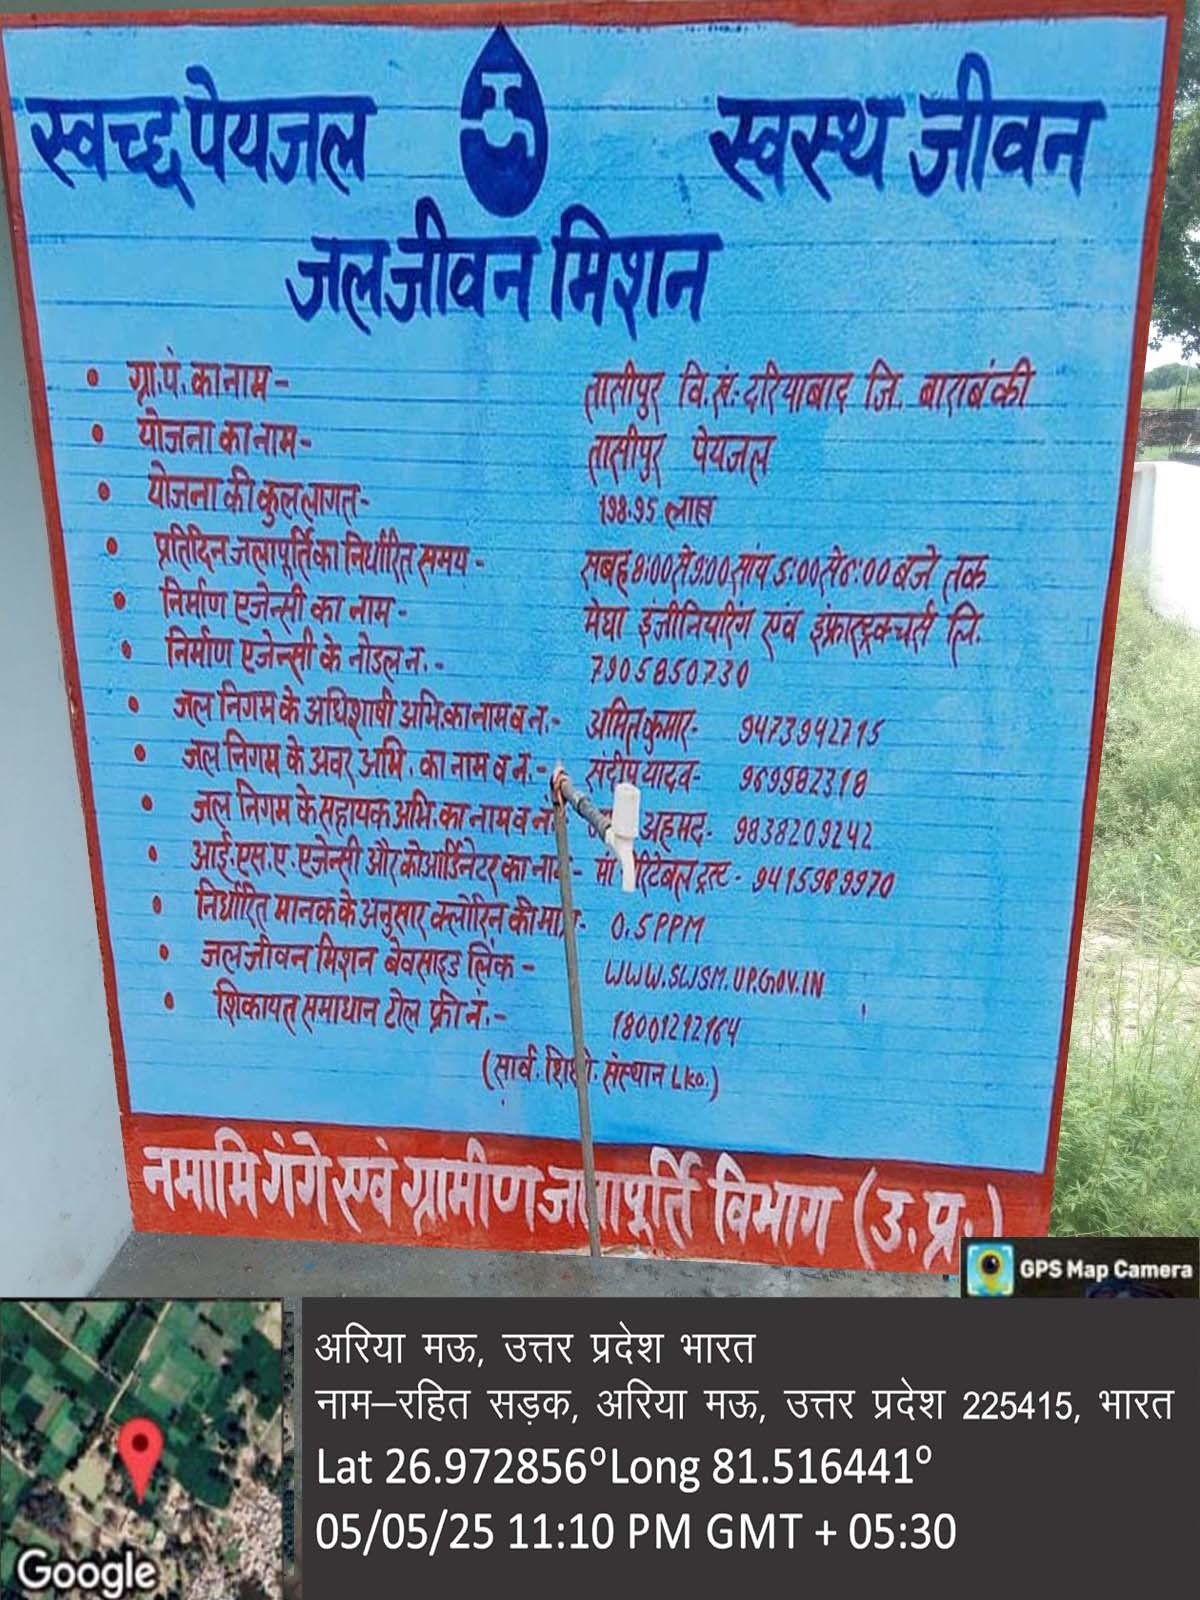 स्वच्छ पेयजल स्वस्थ जीवन
जल जीवन मिशन
• ग्रा.पं. का नाम - तासीपुर वि.सं: दरियाबाद जि. बाराबंकी
• योजना का नाम - तासीपुर पेयजल
• योजना की कुल लागत - 198.95 लाख
• प्रतिदिन जलापूर्ति का निर्धारित समय - सबह 8:00 से 9:00 सांय 5:00 से 6:00 बजे तक
• निर्माण एजेन्सी का नाम - मेघा इंजीनियरिंग एवं इंफ्रास्ट्रक्चर्स लि.
• निर्माण एजेन्सी के नोडल न. - 7905850730
• जल निगम के अधिशाषी अभि. का नाम व न. - अमित कुमार - 9473942715
• जल निगम के अवर अभि. का नाम व न. - संदीप यादव - 969982318
• जल निगम के सहायक अभि. का नाम व नं अहमद - 9838209242
• आई.एस.ए. एजेन्सी और कोआर्डिनेटर का ना - मां ट्रस्ट - 9415989970
• निर्धारित मानक के अनुसार क्लोरिन की मात्रा - 0.5 PPM
• जल जीवन मिशन बेवसाइड लिंक - WWW.SWSM.UP.GOV.IN
• शिकायत समाधान टोल फ्री नं. - 18001212164
(सार्व. संस्थान Lko.)
नमामि गंगे एवं ग्रामीण जलापूर्ति विभाग (उ.प्र.)
GPS Map Camera
अरिया मऊ, उत्तर प्रदेश भारत
नाम-रहित सड़क, अरिया मऊ, उत्तर प्रदेश 225415, भारत
Lat 26.972856° Long 81.516441°
05/05/25 11:10 PM GMT + 05:30
Google